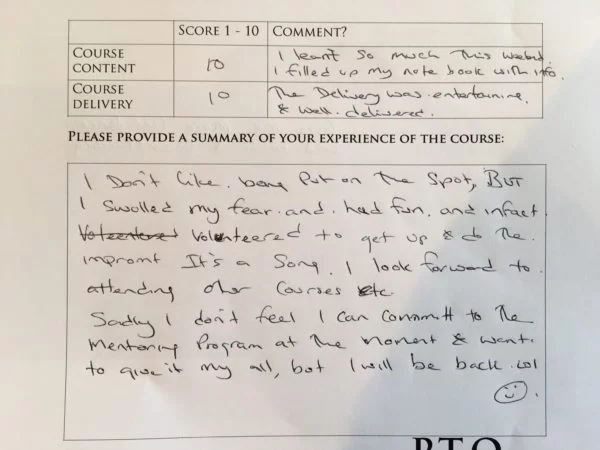 SCORE 1 - 10 COMMENT?
COURSE CONTENT 10 I learnt so much This weekend.
I filled up my note book with info.
COURSE DELIVERY 10 The Delivery was entertaining.
& well delivered.
PLEASE PROVIDE A SUMMARY OF YOUR EXPERIENCE OF THE COURSE:
I Don't like being Put on The Spot, BUT
I Swolled my fear and had fun. and infact.
Volenteered to get up & do The.
impromt It's a Song. I look forward to.
attending other Courses etc
Sadly I don't feel I can Committ to The
Mentoring Program at The moment & want.
to give it my all, but I will be back. lol
P.T.O